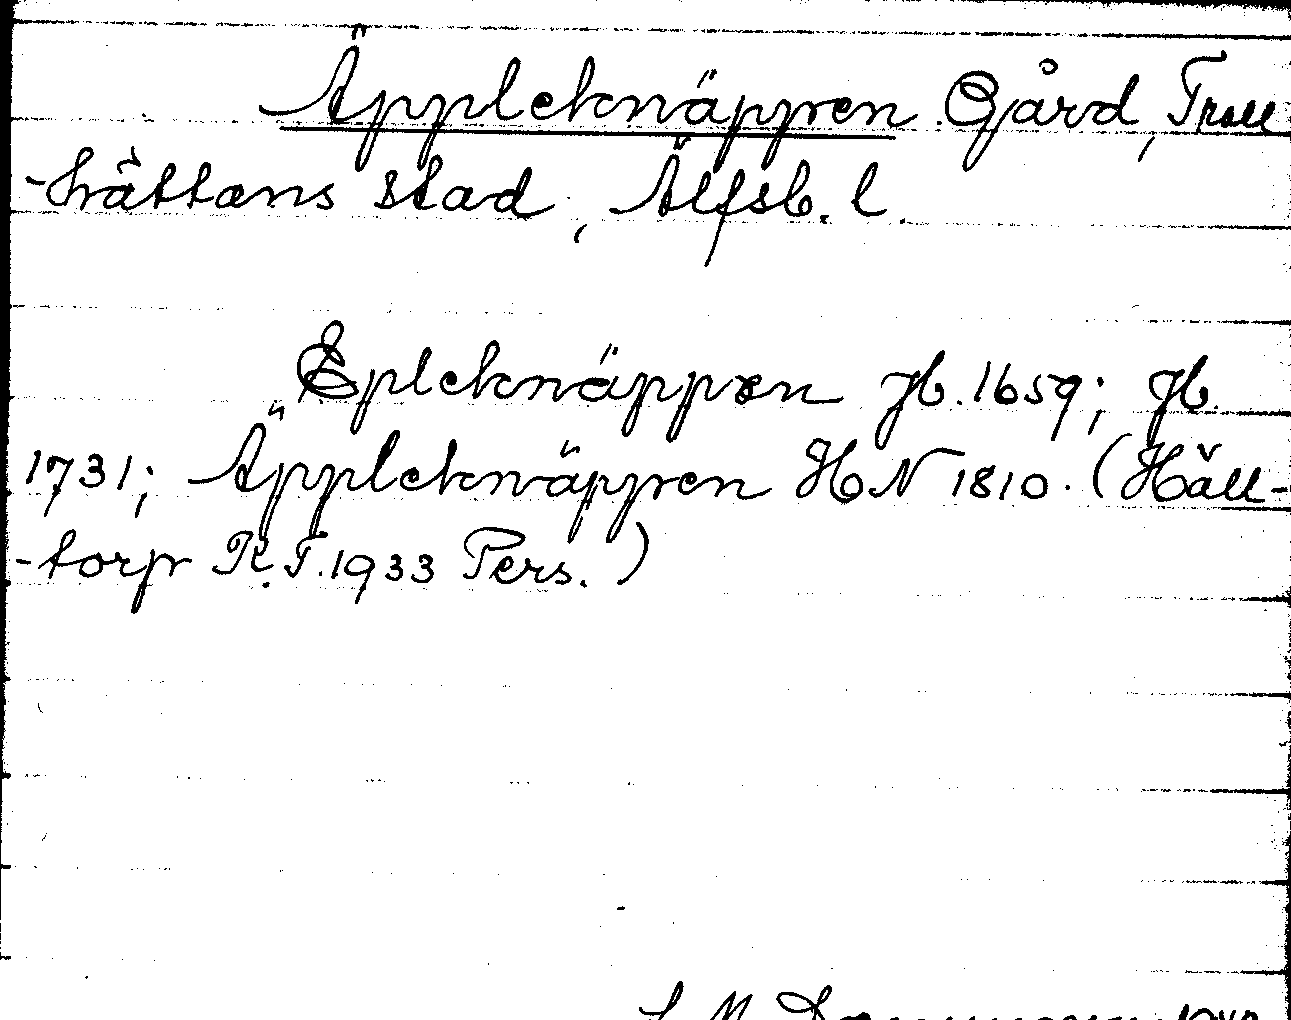 Äppleknäppen Gård, Troll
-hättans stad, Älfsb. l.
Epleknäppen Jb. 1659; Jb.
1731; Äppleknäppen HN 1810. (Häll-
-torp R.T. 1933 Pers.)